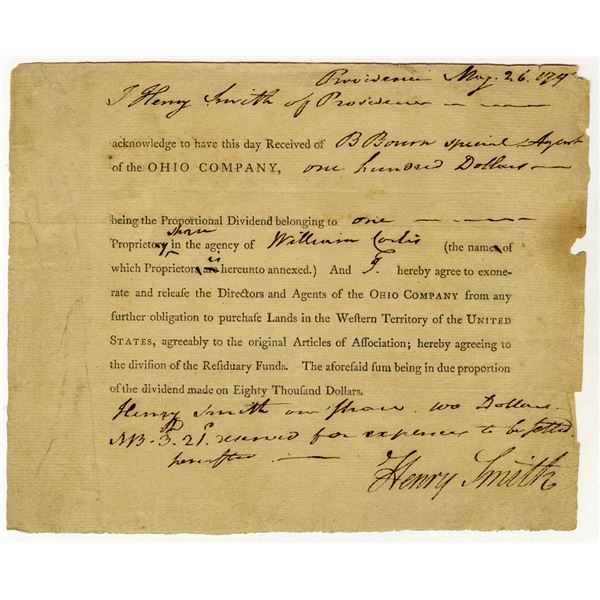 Providence May. 26. 179
I Henry Smith of Providence
acknowledge to have this day Received of B Bourn special Agent
of the OHIO COMPANY, one hundred Dollars
being the Proportional Dividend belonging to one
share
Proprietory in the agency of William Corlis (the names of
is
which Proprietors are hereunto annexed.) And I hereby agree to exone-
rate and releaſe the Directors and Agents of the OHIO COMPANY from any
further obligation to purchaſe Lands in the Weſtern Territory of the UNITED
STATES, agreeably to the original Articles of Aſſociation; hereby agreeing to
the diviſion of the Reſiduary Funds. The aforeſaid ſum being in due proportion
of the dividend made on Eighty Thouſand Dollars.
Henry Smith one Share 100 Dollars
NB. 3. 21 reserved for expences to be settled
hereafter
Henry Smith